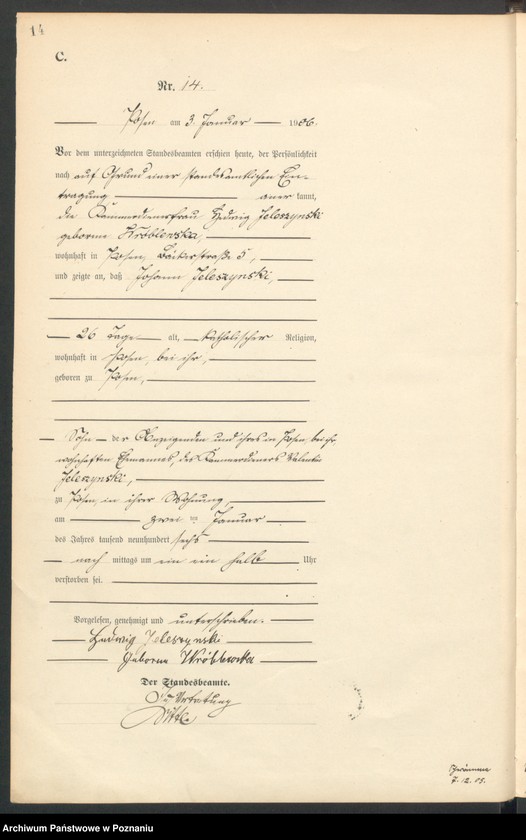 14
C.
Nr. 14.
Posen am 3 Januar 1906.
Vor dem unterzeichneten Standesbeamten erschien heute, der Persönlichkeit
nach auf Grund einer standesamtlichen Ein-
tragung anerkannt,
die Kammerdienerfrau Hedwig Jeleszynski
geborene Wróblewska,
wohnhaft in Posen, Bäckerstraße 5,
und zeigte an, daß Johann Jeleszynski,
26 Tage alt, katholischer Religion,
wohnhaft in Posen, bei ihr,
geboren zu Posen,
Sohn der Anzeigenden und ihres in Posen, bei ihr
wohnhaften Ehemannes, des Kammerdieners Valentin
Jeleszynski,
zu Posen, in ihrer Wohnung,
am zwei ten Januar
des Jahres tausend neunhundert sechs
nach mittags um ein ein halb Uhr
verstorben sei.
Vorgelesen, genehmigt und unterschrieben.
Hedwig Jeleszynski
geborene Wróblewska
Der Standesbeamte.
In Vertretung
7. 12. 05.
Archiwum Państwowe w Poznaniu